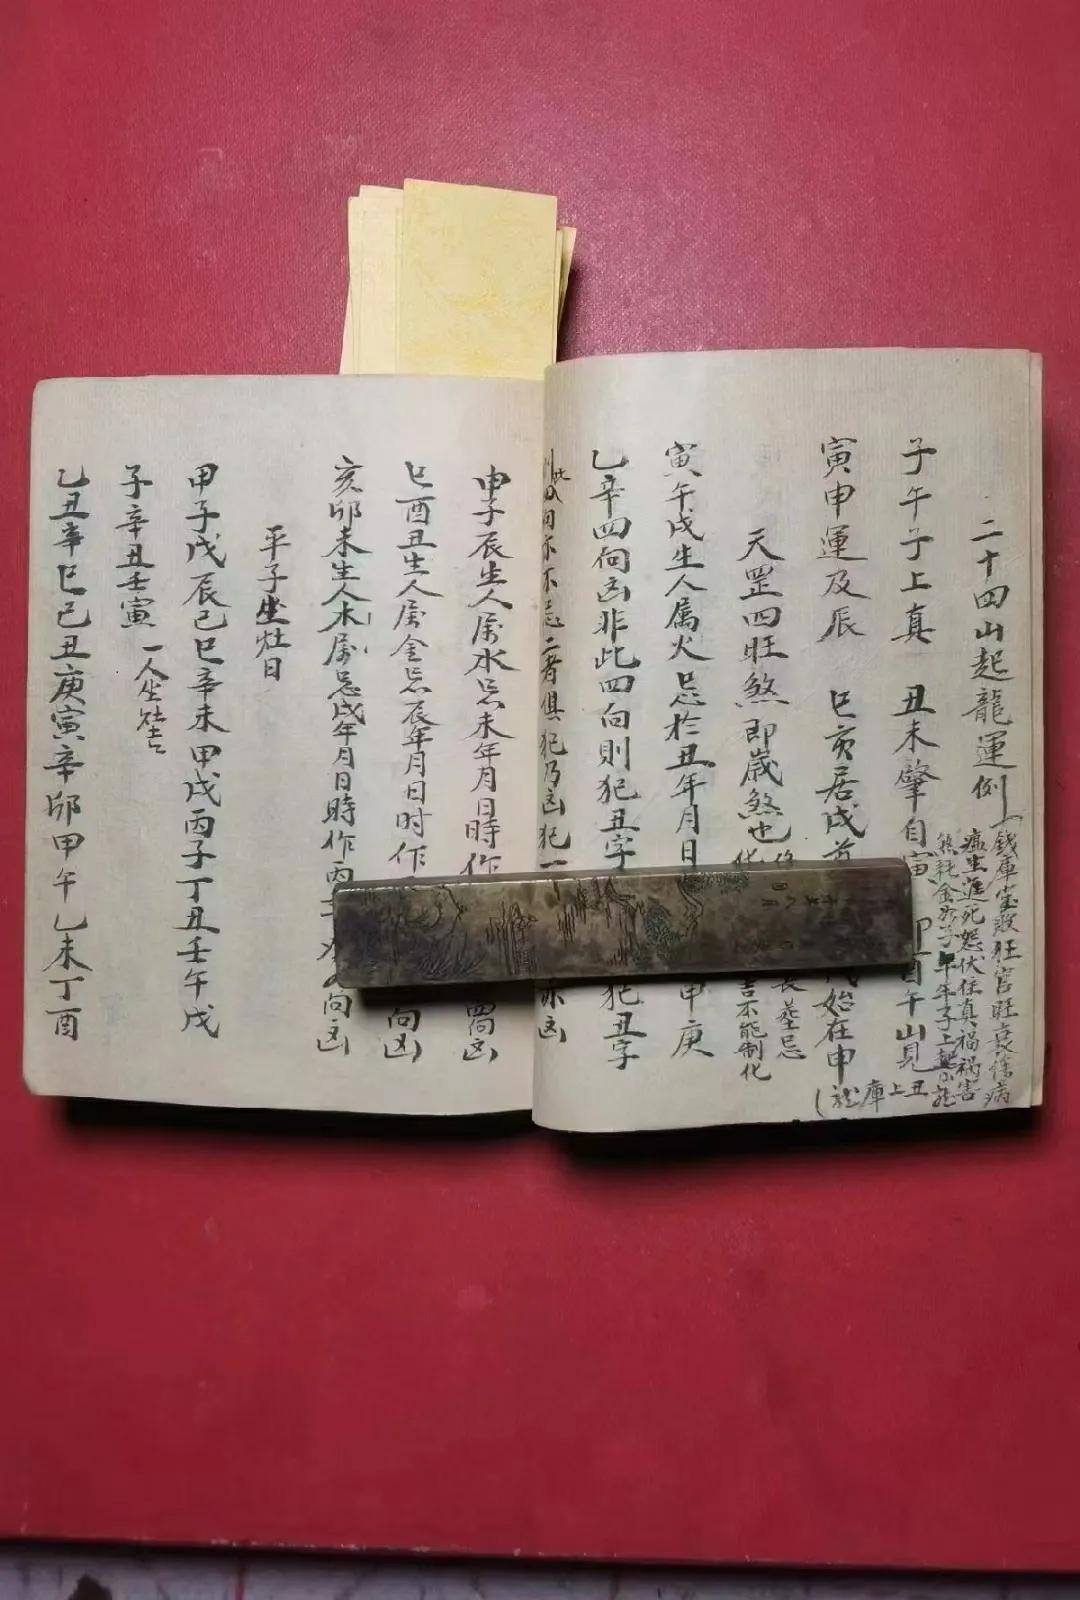 二十四山起龍運例
錢庫宝敗狂官旺哀 病
瘟生進死怨伏住真禍祸害
子午年子上起
丑上庫
子午子上真 丑未肇自寅 卯酉午山見
寅申運及辰 巳亥居戌 始在申
天罡四旺煞即歲煞也
長墓忌
吉不能制化
寅午戌生人属火忌於丑年月日 甲庚
乙辛四向凶非此四向則犯丑字 犯丑字
向亦不忌二者俱犯乃凶犯一 亦凶
申子辰生人属水忌未年月日時作 四向凶
巳酉丑生人属金忘辰年月日时作 向凶
亥卯未生人木属忌戌年月日時作丙 向凶
平子坐灶日
甲子戊辰己巳辛未甲戌丙子丁丑壬午戊
子辛丑壬寅 一人坐灶吉
乙丑辛巳己丑庚寅辛卯甲午乙未丁酉